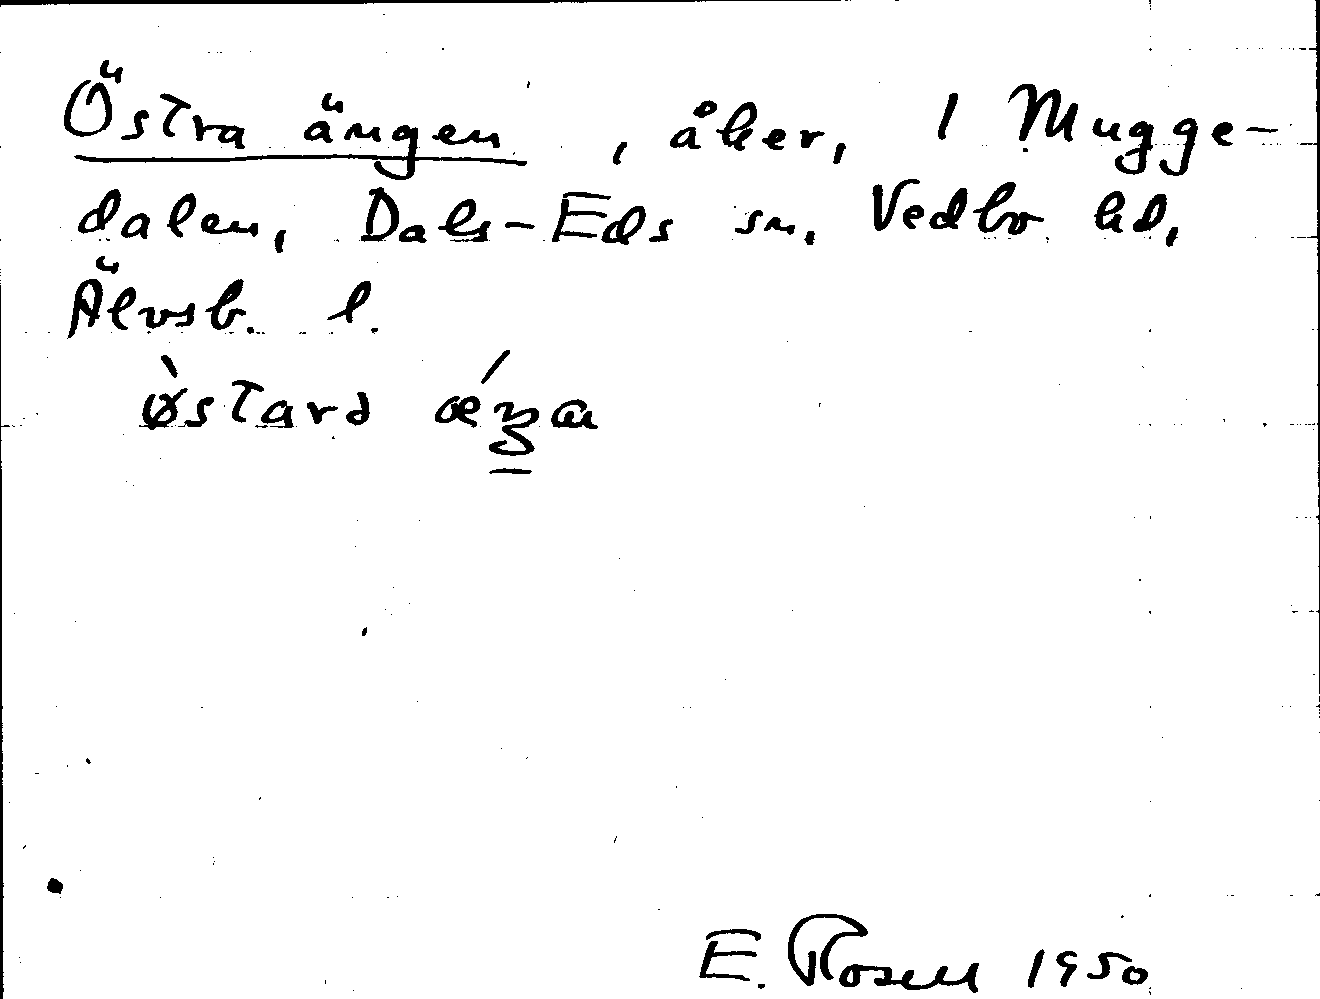 Östra ängen, åker, 1 Mugge-
dalen, Dals-Eds sn. Vedbo hd,
Älvsb. l.
E. Rosell 1950